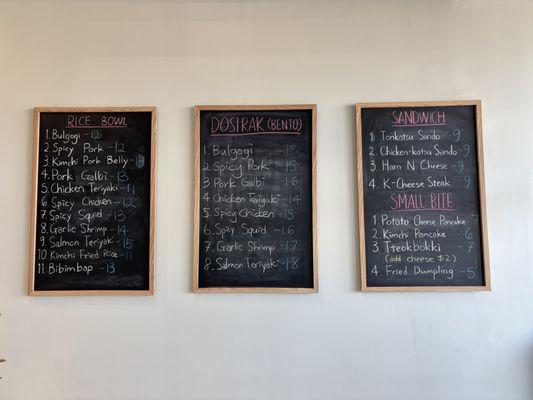 RICE BOWL
1. Bulgogi - 12
2 Spicy Pork - 12
3 Kimchi Pork Belly - 13
4. Pork Galbi - 13
5. Chicken Teriyaki - 11
6 Spicy Chicken - 12
7 Spicy Squid - 13
8 Garlic Shrimp - 14
9. Salmon Teriyaki - 15
10 Kimchi Fried Rice - 11
11 Bibimbap - 13
DOSIRAK (BENTO)
1. Bulgogi 15
2. Spicy Pork 15
3 Pork Galbi - 16
4 Chicken Teriyaki - 14
5 Spicy Chicken - 15
6. Spicy Squid - 16
7. Garlic Shrimp - 17
8 Salmon Teriyaki - 18
SANDWICH
1 Tonkatsu Sando - 9
2. Chicken-katsu Sando - 9
3 Ham N Cheese - 9
4. K-Cheese Steak - 9
SMALL BITE
1 Potato Cheese Pancake - 7
2. Kimchi Pancake - 6
3. Tteokbokki - 7
(add cheese $2)
4 Fried Dumpling - 5